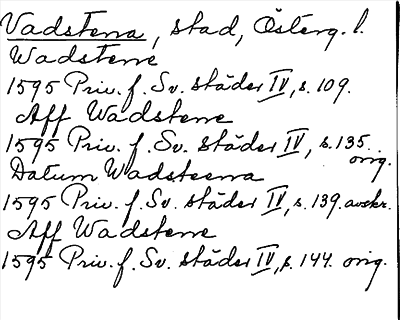 Vadstena, stad, Österg. l.
Wadstene
1595 Priv. f. Sv. städer IV, s. 109.
Aff Wadstene
1595 Priv. f. Sv. städer IV, s. 135. orig.
Datum Wadsteena
1595 Priv. f. Sv. städer IV, s. 139. avskr.
Aff Wadstene
1595 Priv. f. Sv. städer IV, s. 144. orig.